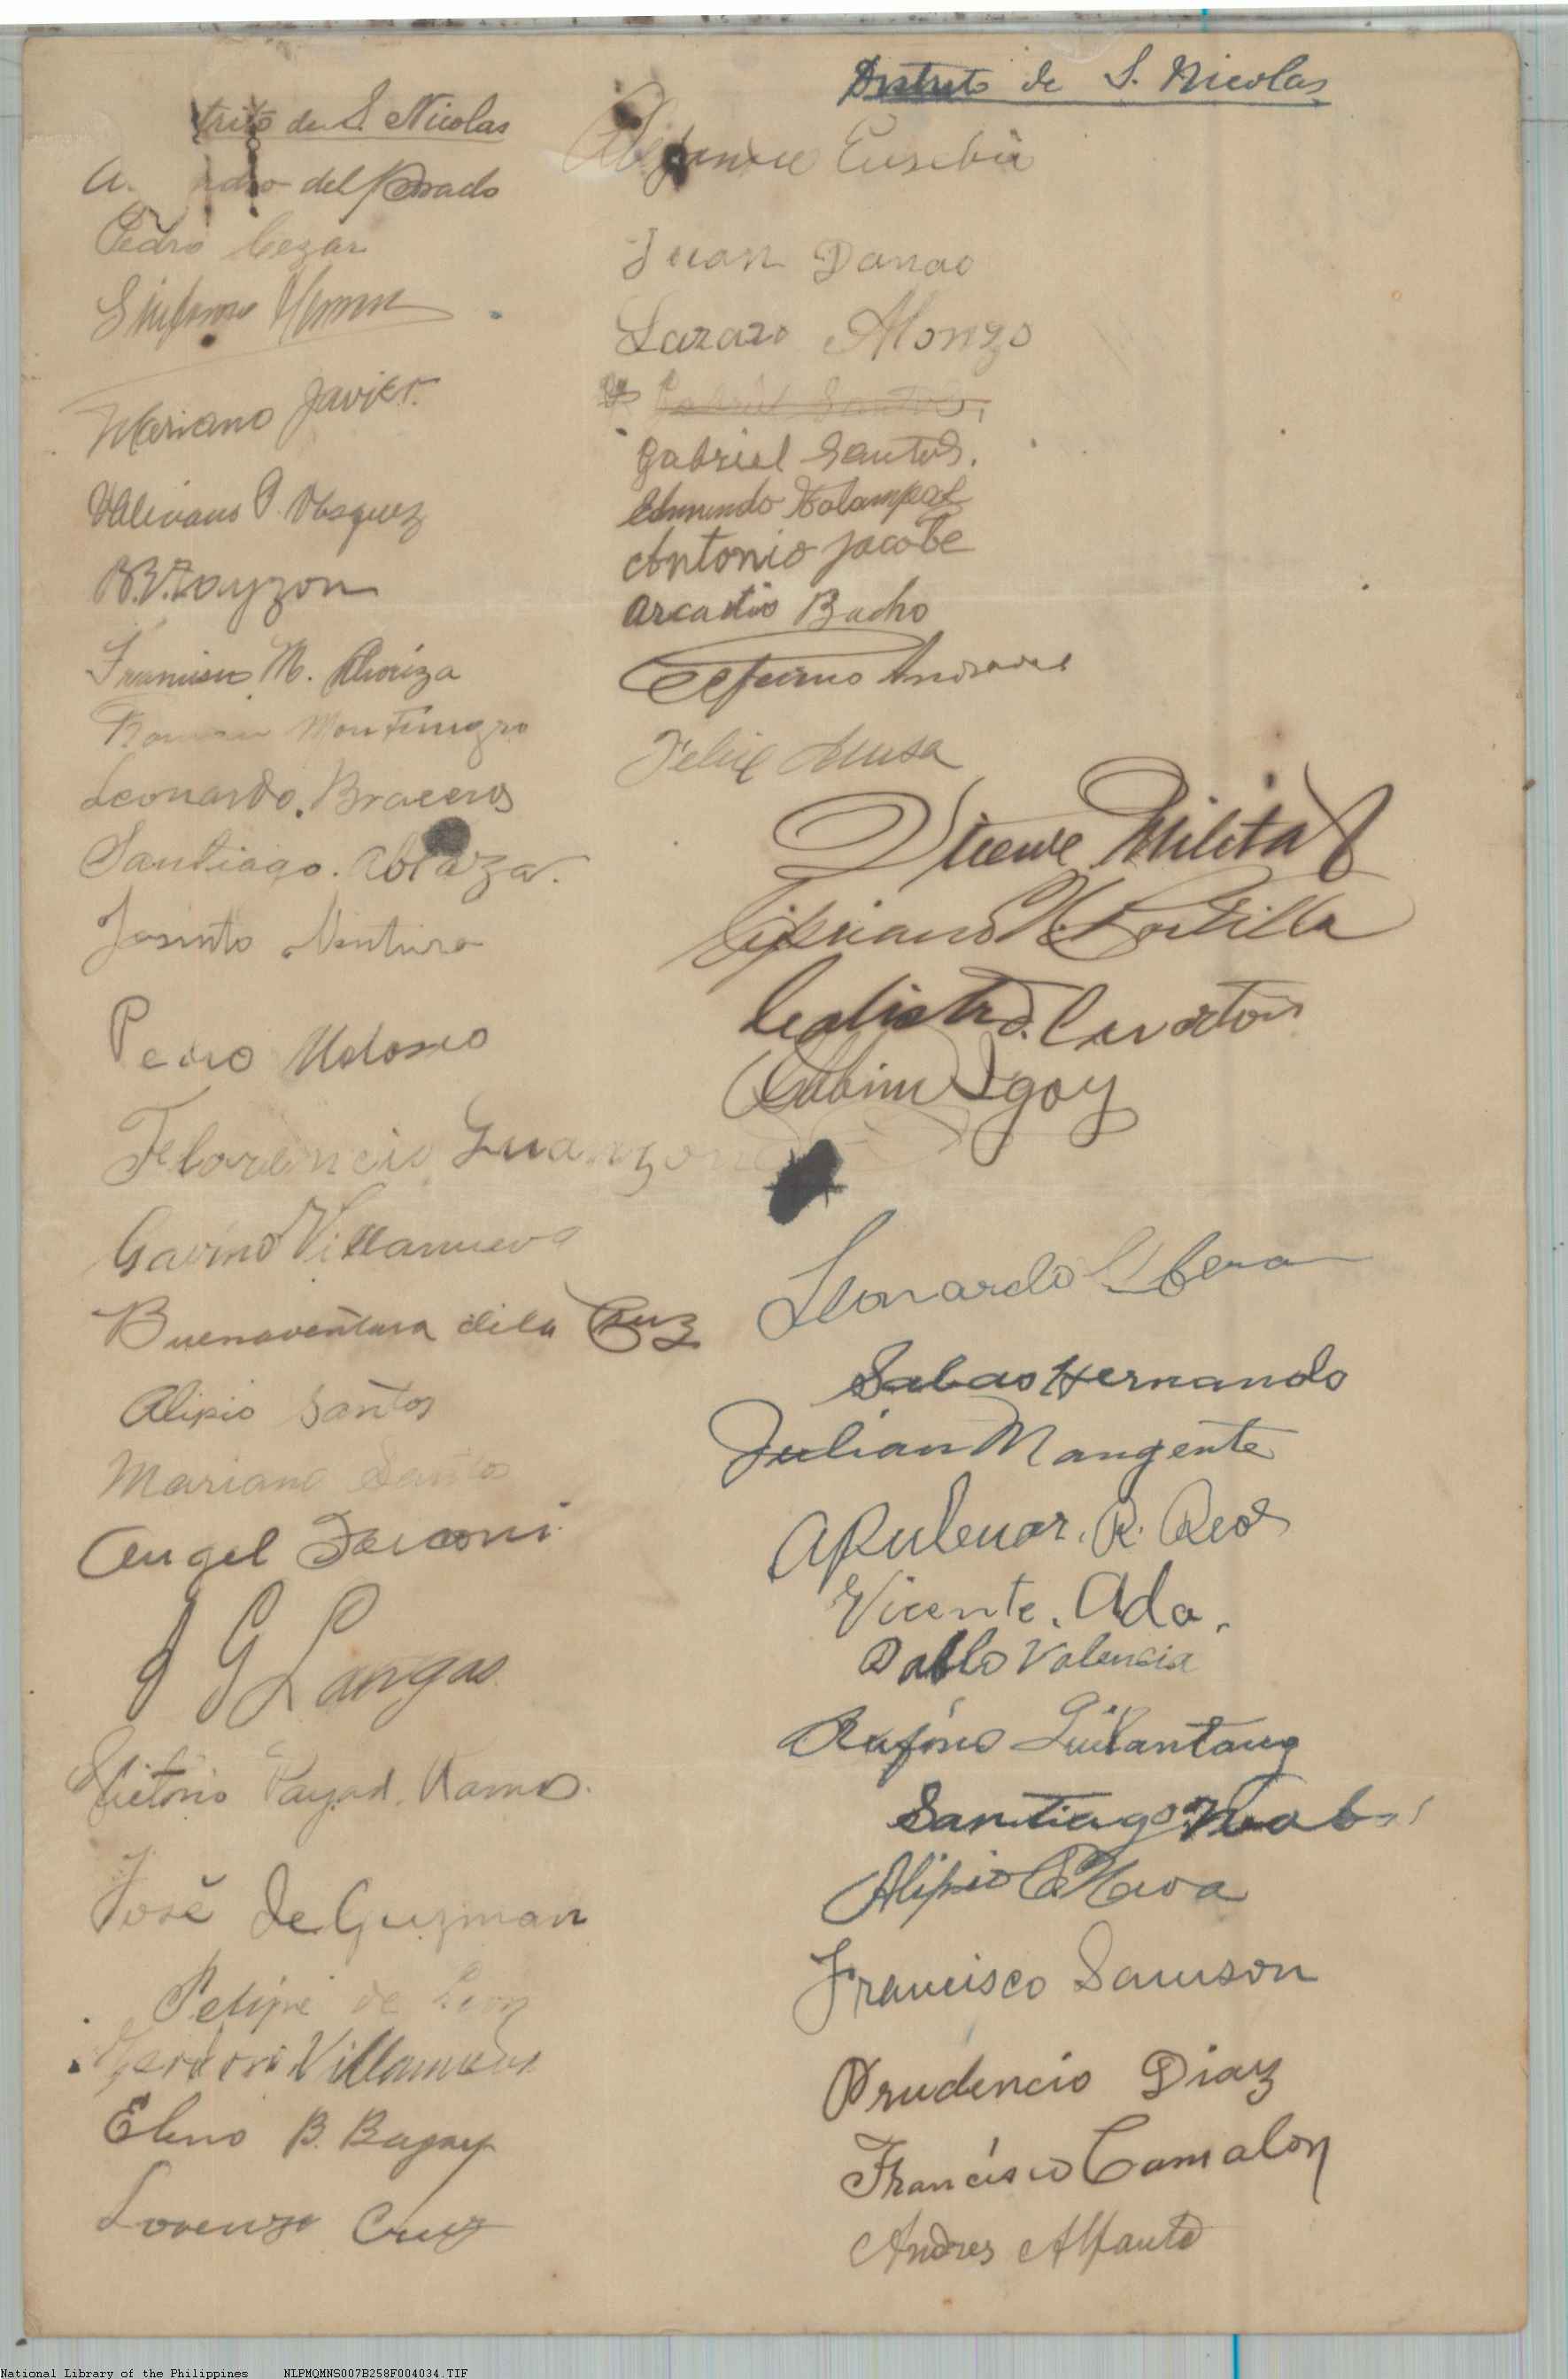 trito de S. Nicolas
del Prado
Pedro Cezar
Mariano Javier.
Valeriano P. Vasquez
B.V. Tayzon
Francisco M.
Roman Montinegro
Leonardo. Braceros
Santiago. Abraza.
Jasinto Nentura
Pedro
Florencio Guanzon
Gavino Villanueva
Buenaventura dela Cruz
Alipio Santos
Mariano Santos
Angel
J G Langas
Victorio Payad. Ramos.
José de Guzman
Felipe de Leon
Villanueva
Eleno B. Bagay
Lorenzo Cruz
Distrito de S. Nicolas
Alejandro Eusebio
Juan Danao
Lazaro Alonzo
Gabriel Santos.
Gabriel Santos.
Edmundo
Antonio Jacobe
Arcadio Bacho
Ceferino Andrade
Felix Musa
Vicente Militar
Cipriano V. Portilla
Calixtro.
Sabino Igoy
Leonardo
Sabas Hernando
Julian Mangente
R. Reos
Vicente. Ada.
Pablo Valencia
Rufino
Santiago
Alipio C. Nava
Francisco Samson
Prudencio Diaz
Francisco Camalon
Andres Alfante
National Library of the Philippines NLPMQMNS007B258F004034.TIF